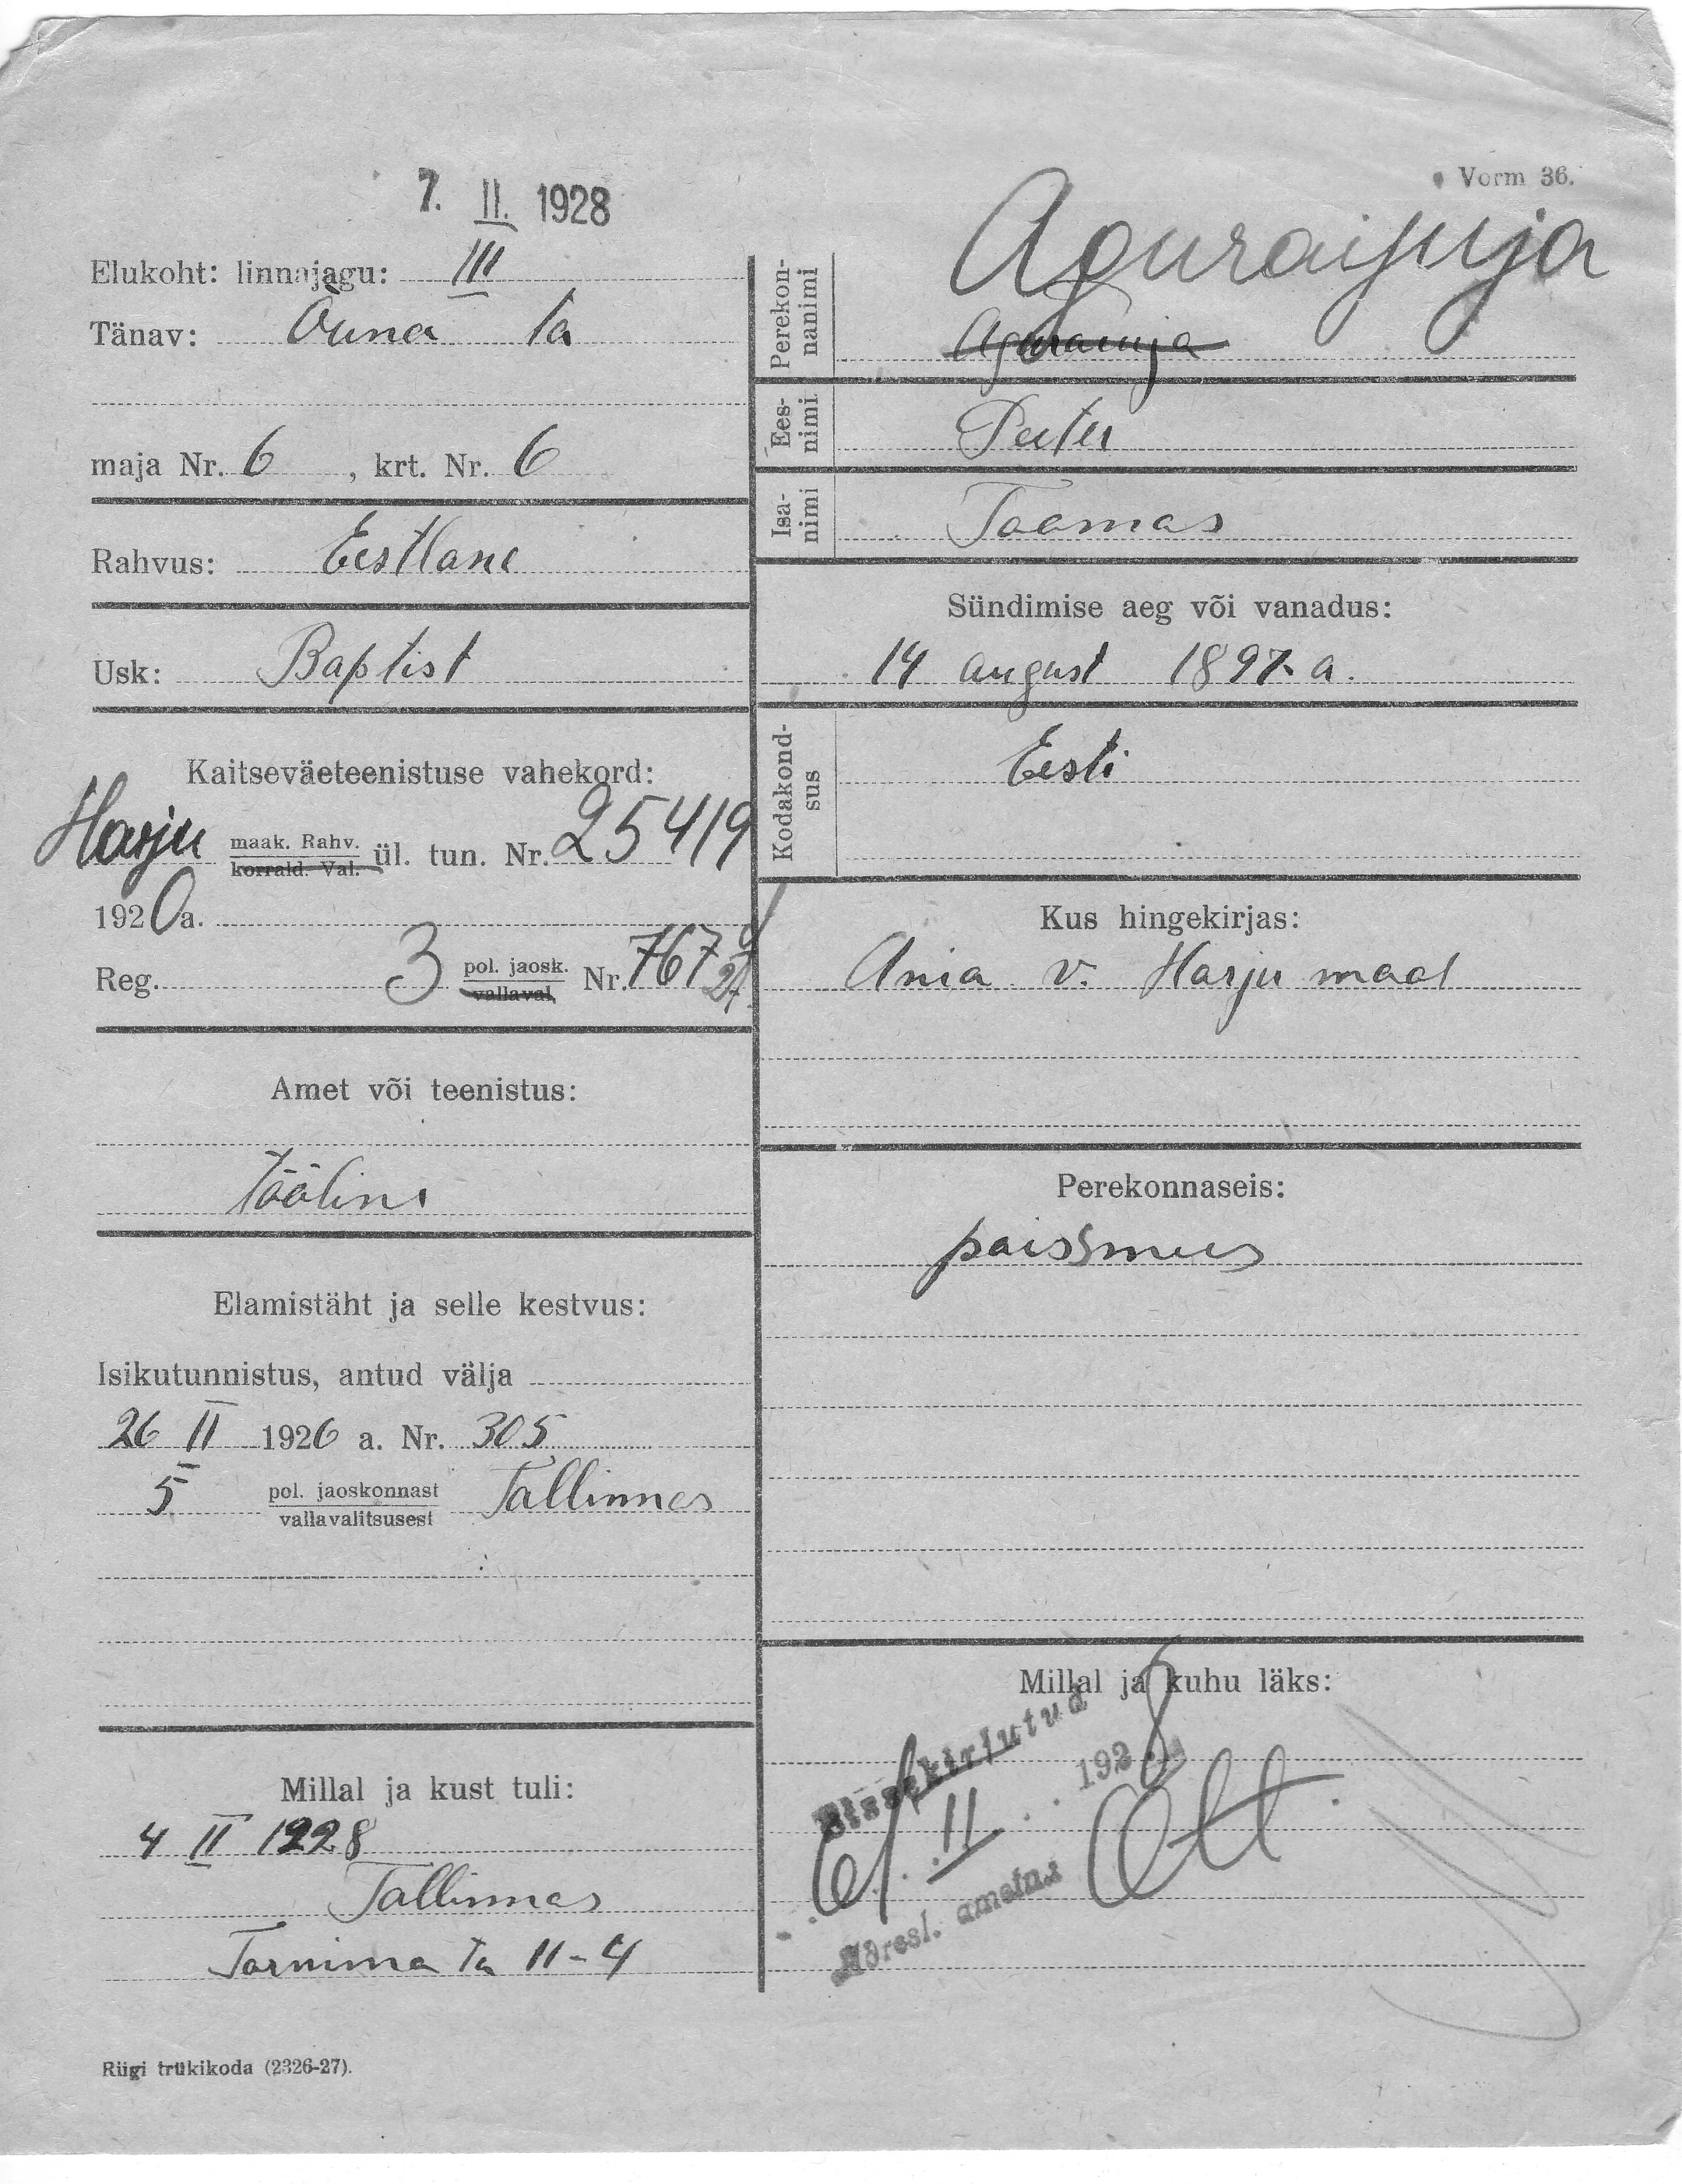 7. II. 1928
Vorm 36.
Elukoht: linnajagu: III
Tänav: Õuna ta
maja Nr. 6, krt. Nr. 6
Rahvus: Eestlane
Usk: Baptist
Kaitseväeteenistuse vahekord:
Harju maak. Rahv. ül. tun. Nr. 25419
korrald. Val.
1920 a.
Reg. 3 pol. jaosk. Nr. 767
vallaval.
Amet või teenistus:
Tööline
Elamistäht ja selle kestvus:
Isikutunnistus, antud välja
26 II 1926 a. Nr. 305
5 pol. jaoskonnast Tallinnas
vallavalitsusest
Millal ja kust tuli:
4 II 1928
Tallinnas
Tornima ta 11-4
Riigi trükikoda (2326-27).
Perekonnanimi
Aguraiuja
Ees-nimi Peeter
Isa-nimi Toomas
Sündimise aeg või vanadus:
14 august 1897 a.
Kodakondsus Eesti
Kus hingekirjas:
Ania v. Harju maal
Perekonnaseis:
poissmees
Millal ja kuhu läks:
Sissekirjutud
II 1928
Adresl. ametn. Ott